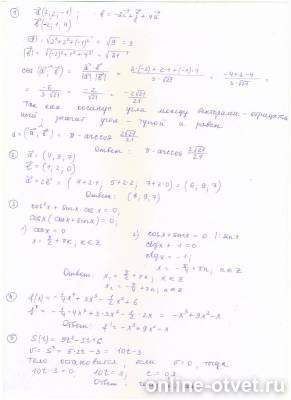 ① a⃗(2; 2; -1) b⃗ = -2i⃗ + j⃗ + 4k⃗
b⃗(-2; 1; 4)
|a⃗| = √(2² + 2² + (-1)²) = √9 = 3
|b⃗| = √((-2)² + 1² + 4²) = √21
cos(a⃗; b⃗) = (a⃗·b⃗)/(|a⃗|·|b⃗|) = (2·(-2) + 2·1 + (-1)·4)/(3·√21) = (-4+2-4)/(3·√21) =
= -6/(3√21) = -2/√21 = -2√21/21
Так как косинус угла между векторами - отрицатель
ный, значит угол - тупой и равен
π - arccos 2√21/21
Ответ: π - arccos 2√21/21
② a⃗ = (4; 5; 7)
b⃗ = (1; 2; 0)
a⃗ + 2b⃗ = (4 + 2·1; 5 + 2·2; 7 + 2·0) = (6; 9; 7)
Ответ: (6; 9; 7)
③ cos²x + sinx·cosx = 0;
cosx(cosx + sinx) = 0;
1) cosx = 0
x = π/2 + πk; k∈Z
2) cosx + sinx = 0 | : sinx
ctgx + 1 = 0
ctgx = -1;
x = -π/4 + πn; n∈Z
Ответ: x₁ = π/2 + πk; k∈Z
x₂ = -π/4 + πn; n∈Z
④
Ответ: f' = -x³ + 9x² - x
⑤ S(t) = 5t² - 3t + 6
v = S' = 5·2t - 3 = 10t - 3
Тело остановится, если v = 0, тогда
10t - 3 = 0 10t = 3; t = 0,3
Ответ:
online-otvet.ru